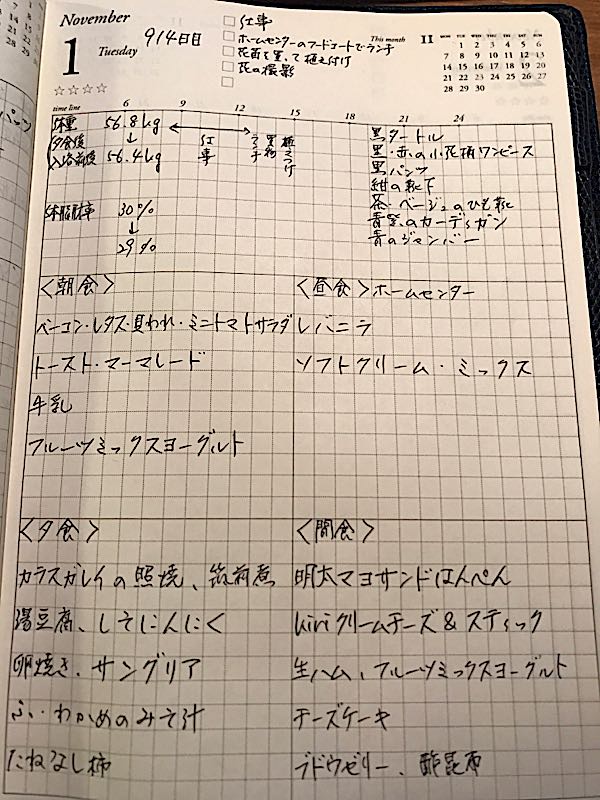 November
1
Tuesday
914日目
☆☆☆☆
□ 仕事
□ ホームセンターのフードコートでランチ
□ 花苗を買って植え付け
□ 花の撮影
□
This month
11
MON TUE WED THU FRI SAT SUN
1 2 3 4 5 6
7 8 9 10 11 12 13
14 15 16 17 18 19 20
21 22 23 24 25 26 27
28 29 30
time line 6 9 12 15 18 21 24
体重 56.8kg
夕食後 ↓
入浴前後 56.4kg
仕事
ランチ
買物
植えつけ
体脂肪率 30%
↓
29%
黒タートル
黒・赤の小花柄ワンピース
黒パンツ
紺の靴下
茶・ベージュのひも靴
青紫のカーディガン
青のジャンバー
<朝食>
ベーコン・レタス・貝われ・ミニトマトサラダ
トースト・マーマレード
牛乳
フルーツミックスヨーグルト
<昼食>ホームセンター
レバニラ
ソフトクリーム・ミックス
<夕食>
カラスガレイの照焼、筑前煮
湯豆腐、しそにんにく
卵焼き、サングリア
ふ・わかめのみそ汁
たねなし柿
<間食>
明太マヨサンドはんぺん
kiriクリームチーズ&スティック
生ハム、フルーツミックスヨーグルト
チーズケーキ
ブドウゼリー、酢昆布